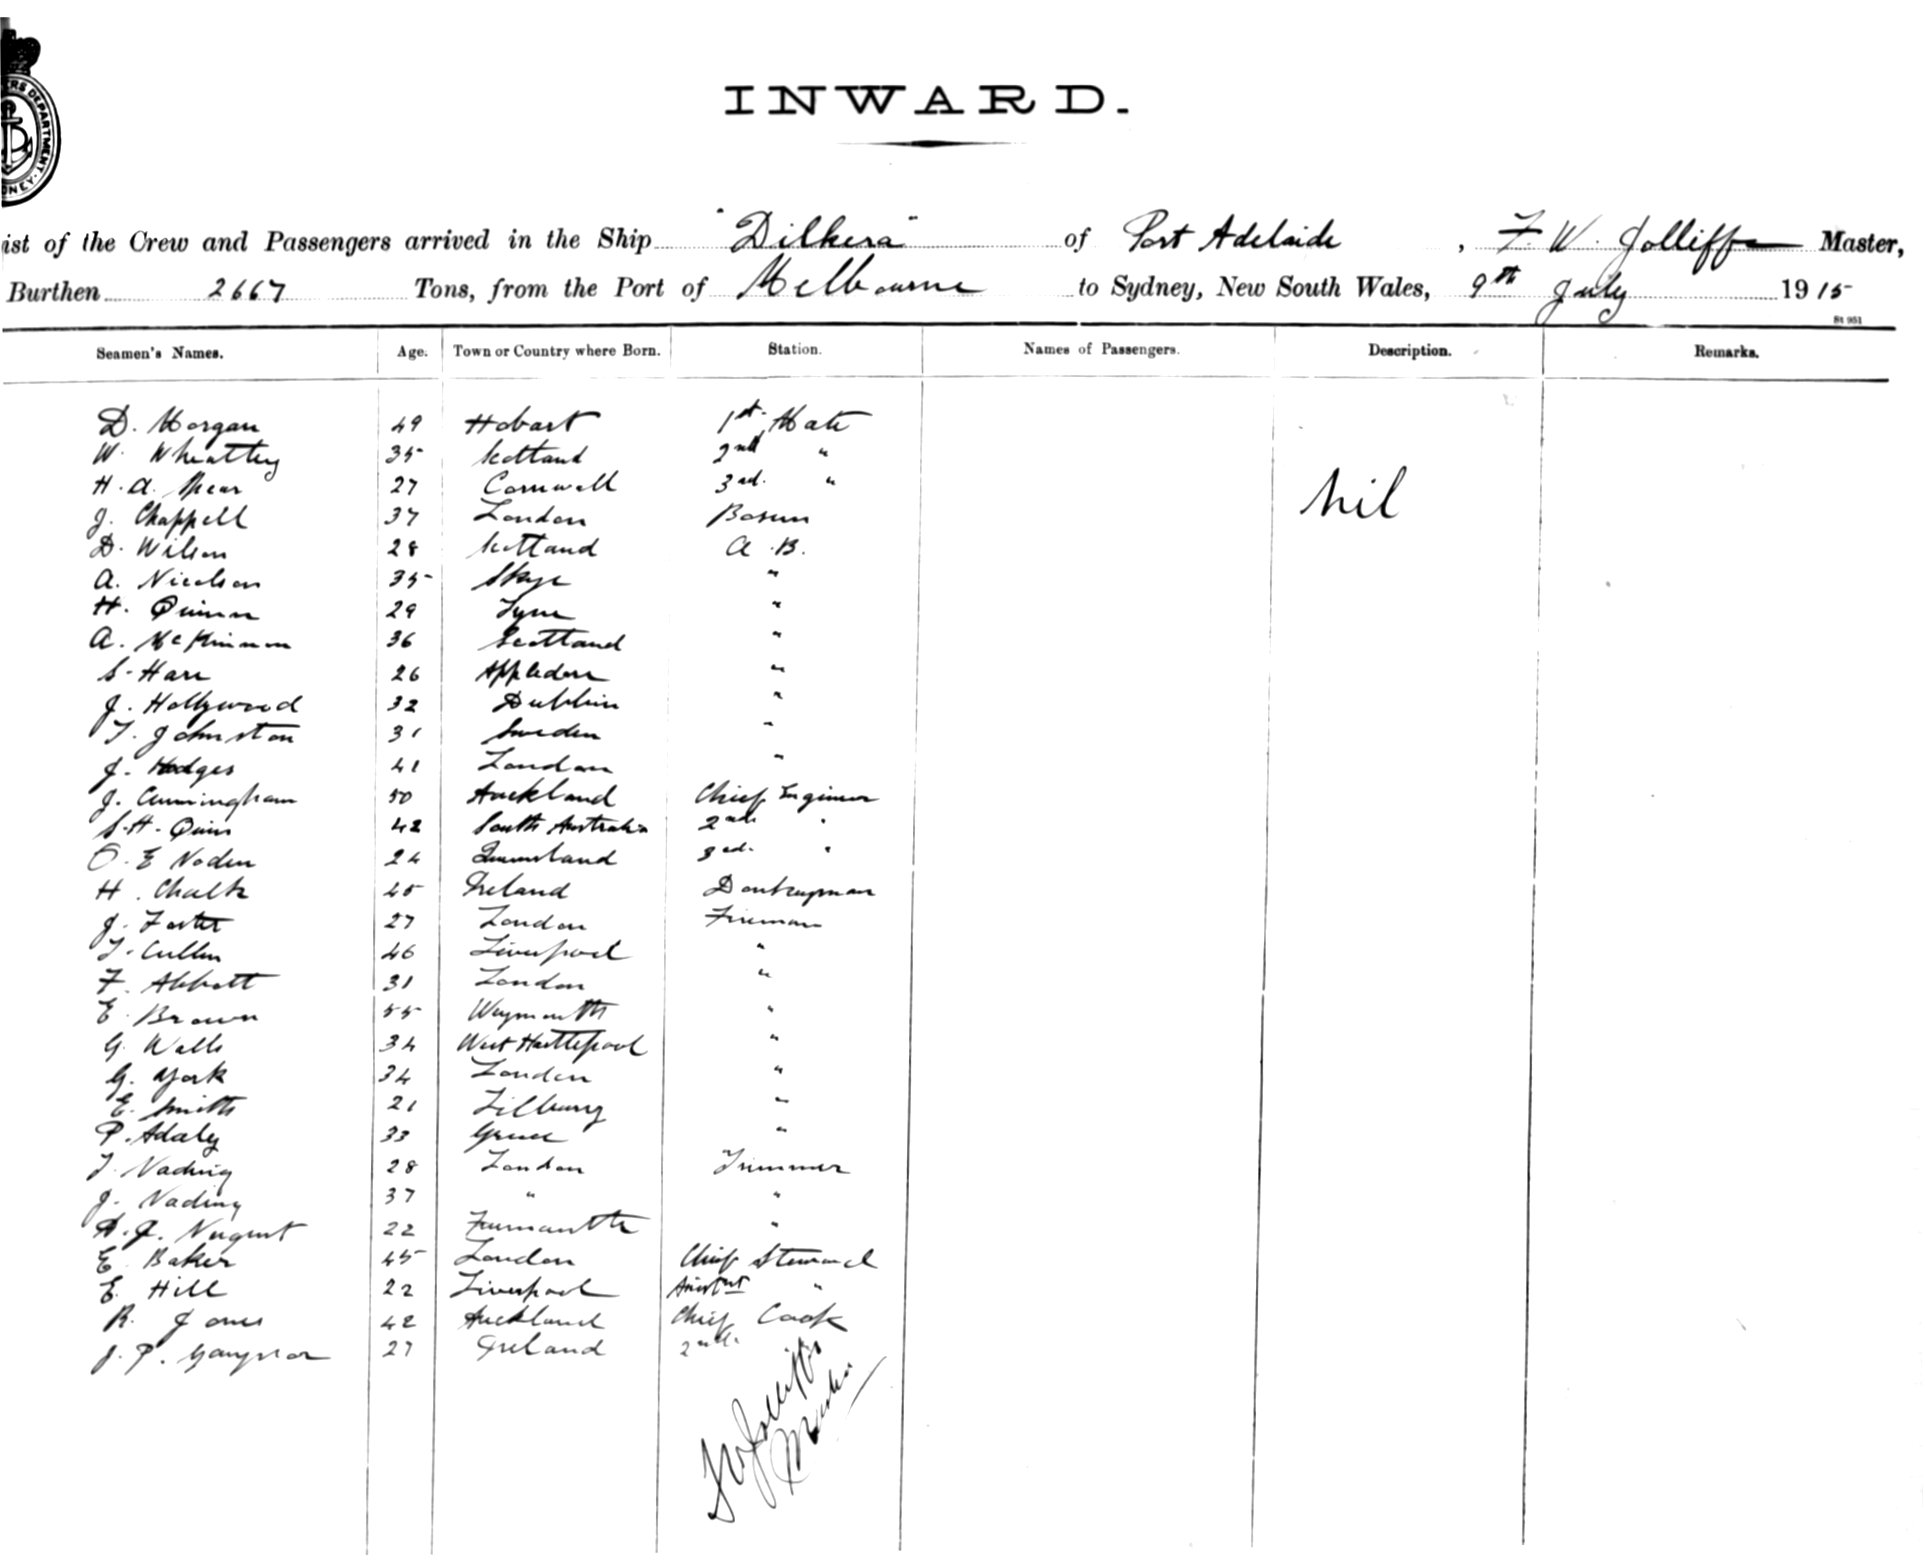 INWARD.
ERS DEPARTMENT.
ist of the Crew and Passengers arrived in the Ship "Dilkera" of Port Adelaide, F. W. Jolliffe Master,
Burthen 2667 Tons, from the Port of Melbourne to Sydney, New South Wales, 9th July 1915
St 951
Seamen's Names. Age. Town or Country where Born. Station. Names of Passengers. Description. Remarks.
D. Morgan 49 Hobart 1st. Mate
W. Wheatley 35 Scotland 2nd "
H. A. Spear 27 Cornwall 3rd. " Nil
J. Chappell 37 London Bosun
D. Wilson 28 Scotland A.B.
A. Nicolson 35 Skye "
H. Quinn 29 Tyne "
A. McKinnon 36 Scotland "
S. Hare 26 Appledore "
J. Hollywood 32 Dublin "
T. Johnston 31 Sweden "
J. Hodges 41 London "
J. Cunningham 50 Auckland Chief Engineer
S. H. Quin 42 South Australia 2nd "
O. E Noden 24 Queensland 3rd. "
H. Chalk 45 Ireland Donkeyman
J. Foster 27 London Fireman
T. Cullen 46 Liverpool "
F. Abbott 31 London "
E. Brown 55 Weymouth "
G. Walls 34 West Hartlepool "
G. York 34 London "
E. Smith 21 Tilbury "
P. Adaley 33 Greece "
T. Nading 28 London Trimmer
J. Nading 37 " "
J. Nugent 22 Fremantle "
E. Baker 45 London Chief Steward
E. Hill 22 Liverpool Assistant "
R. Jones 42 Auckland Chief Cook
J. P. 27 Ireland 2nd.
F W Jolliffe
Master